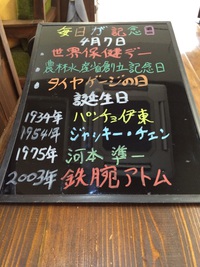 毎日が記念日
4月7日
・世界保健デー
・農林水産省創立記念日
・タイヤゲージの日
誕生日
1934年 パンチョ伊東
1954年 ジャッキー・チェン
1975年 河本 準一
2003年 鉄腕アトム